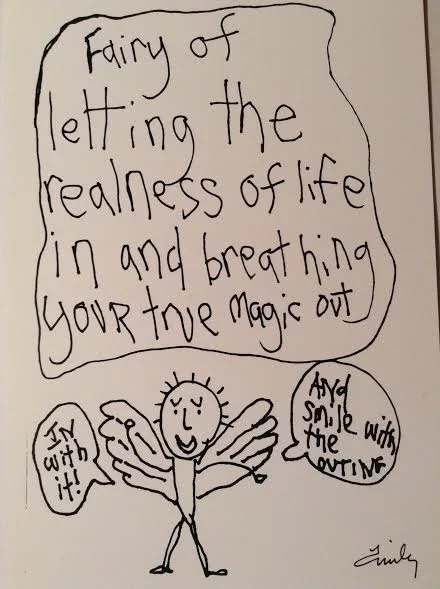 Fairy of
letting the
realness of life
in and breathing
your true magic out
IN
with
it!
And
smile with
the
OUTING
Emily